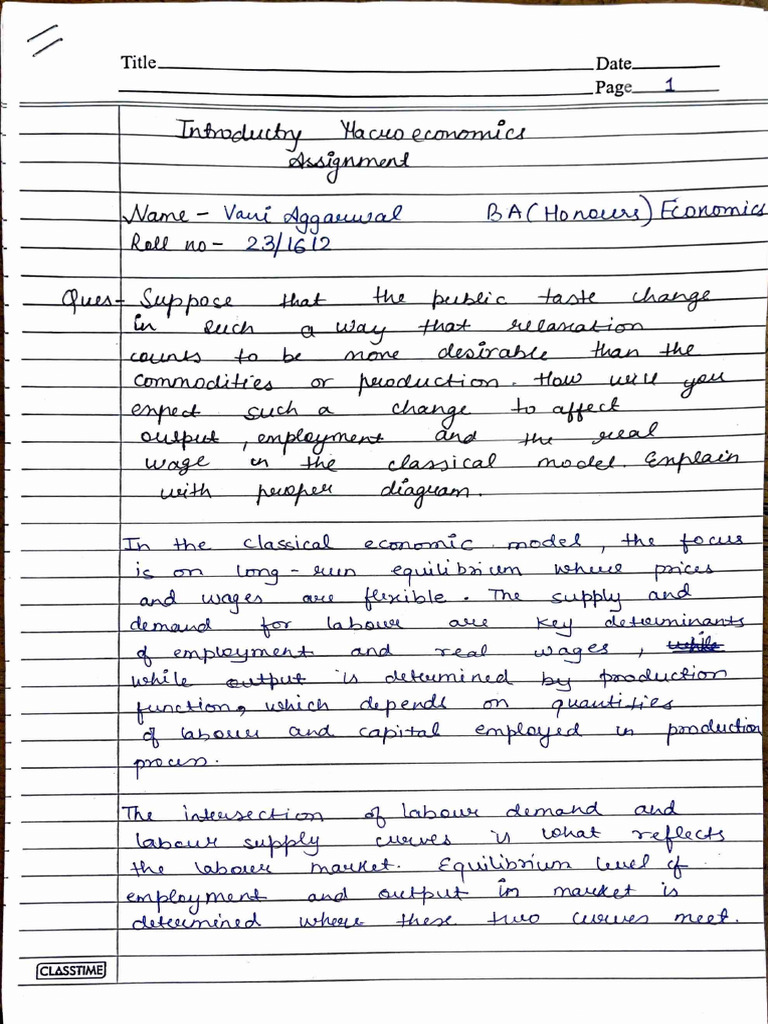 Title Date
Page 1
Introductry Macro economics
Assignment
Name - Vani Aggarwal BA (Honours) Economics
Roll no - 23/1612
Ques - Suppose that the public taste change
in such a way that relaxation
counts to be more desirable than the
commodities or production. How will you
expect such a change to affect
output, employment and the real
wage in the classical model. Explain
with proper diagram.
In the classical economic model, the focus
is on long-run equilibrium where prices
and wages are flexible. The supply and
demand for labour are key determinants
of employment and real wages, while
while output is determined by production
function, which depends on quantities
of labour and capital employed in production
process.
The intersection of labour demand and
labour supply curves is what reflects
the labour market. Equilibrium level of
employment and output in market is
determined where these two curves meet.
CLASSTIME